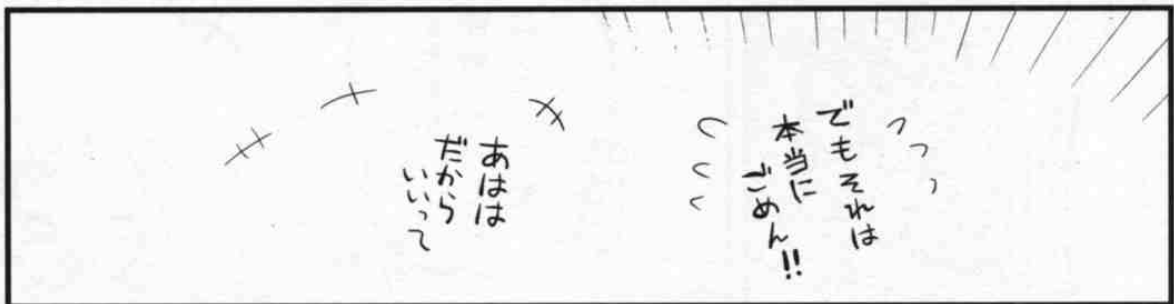 でもそれは
本当に
ごめん!!
あはは
だから
いいって